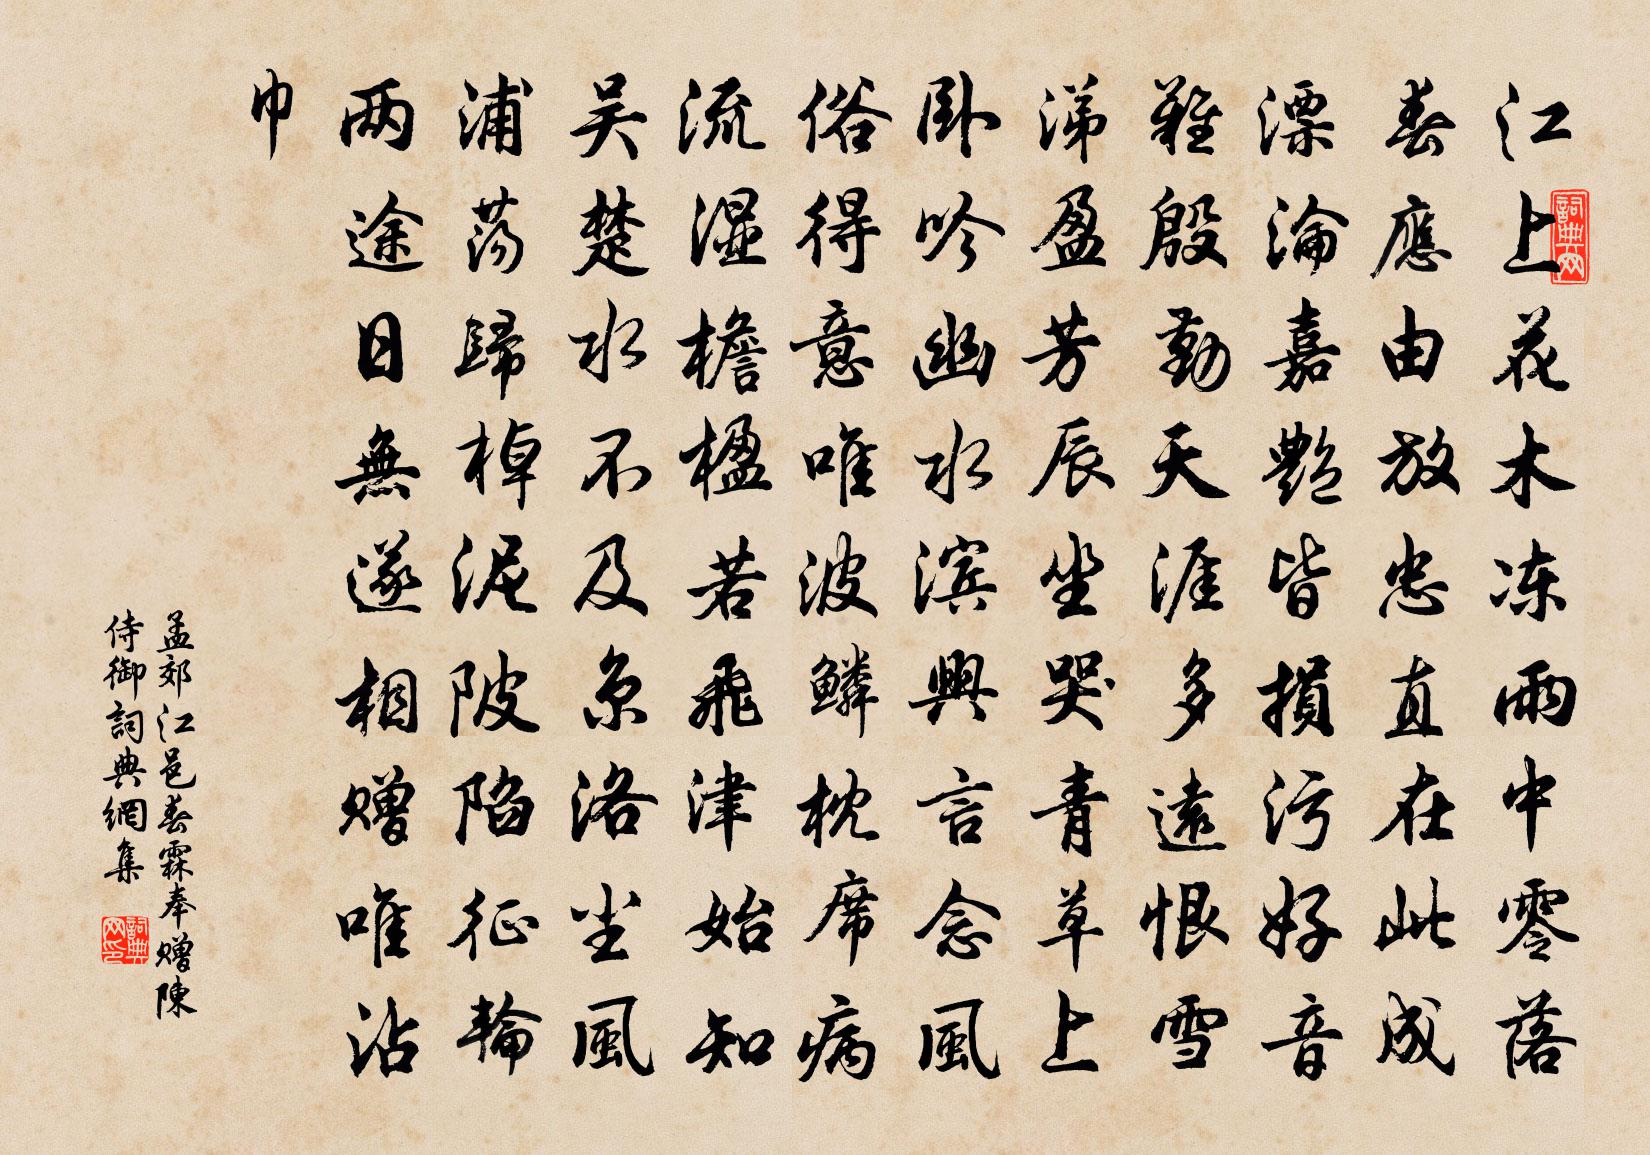 江上花木冻雨中零落
春應由放忠直在此成
漂淪嘉艷皆損污好音
難殷勤天涯多遠恨雪
涕盈芳辰坐哭青草上
卧吟幽水滨興言念風
俗得意唯波鳞枕席病
流湿檐楹若飛津始知
吴楚水不及京洛尘風
浦荡歸棹泥陂陷征輪
两途日無遂相赠唯沾
巾
孟郊江邑春霖奉赠陳
侍御詞典網集
詞典网
詞典网印